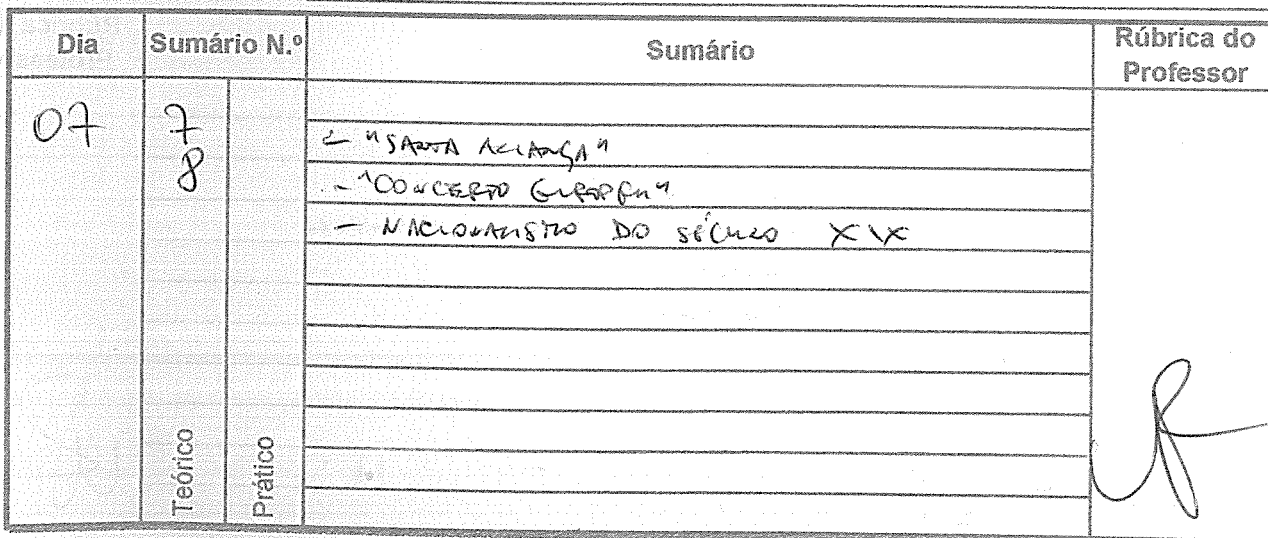 Dia Sumário N.º Sumário Rúbrica do Professor
07 7 - "SANTA ALIANÇA"
8 - "CONCERTO EUROPEU"
- NACIONALISMO DO SÉCULO XIX
Teórico Prático